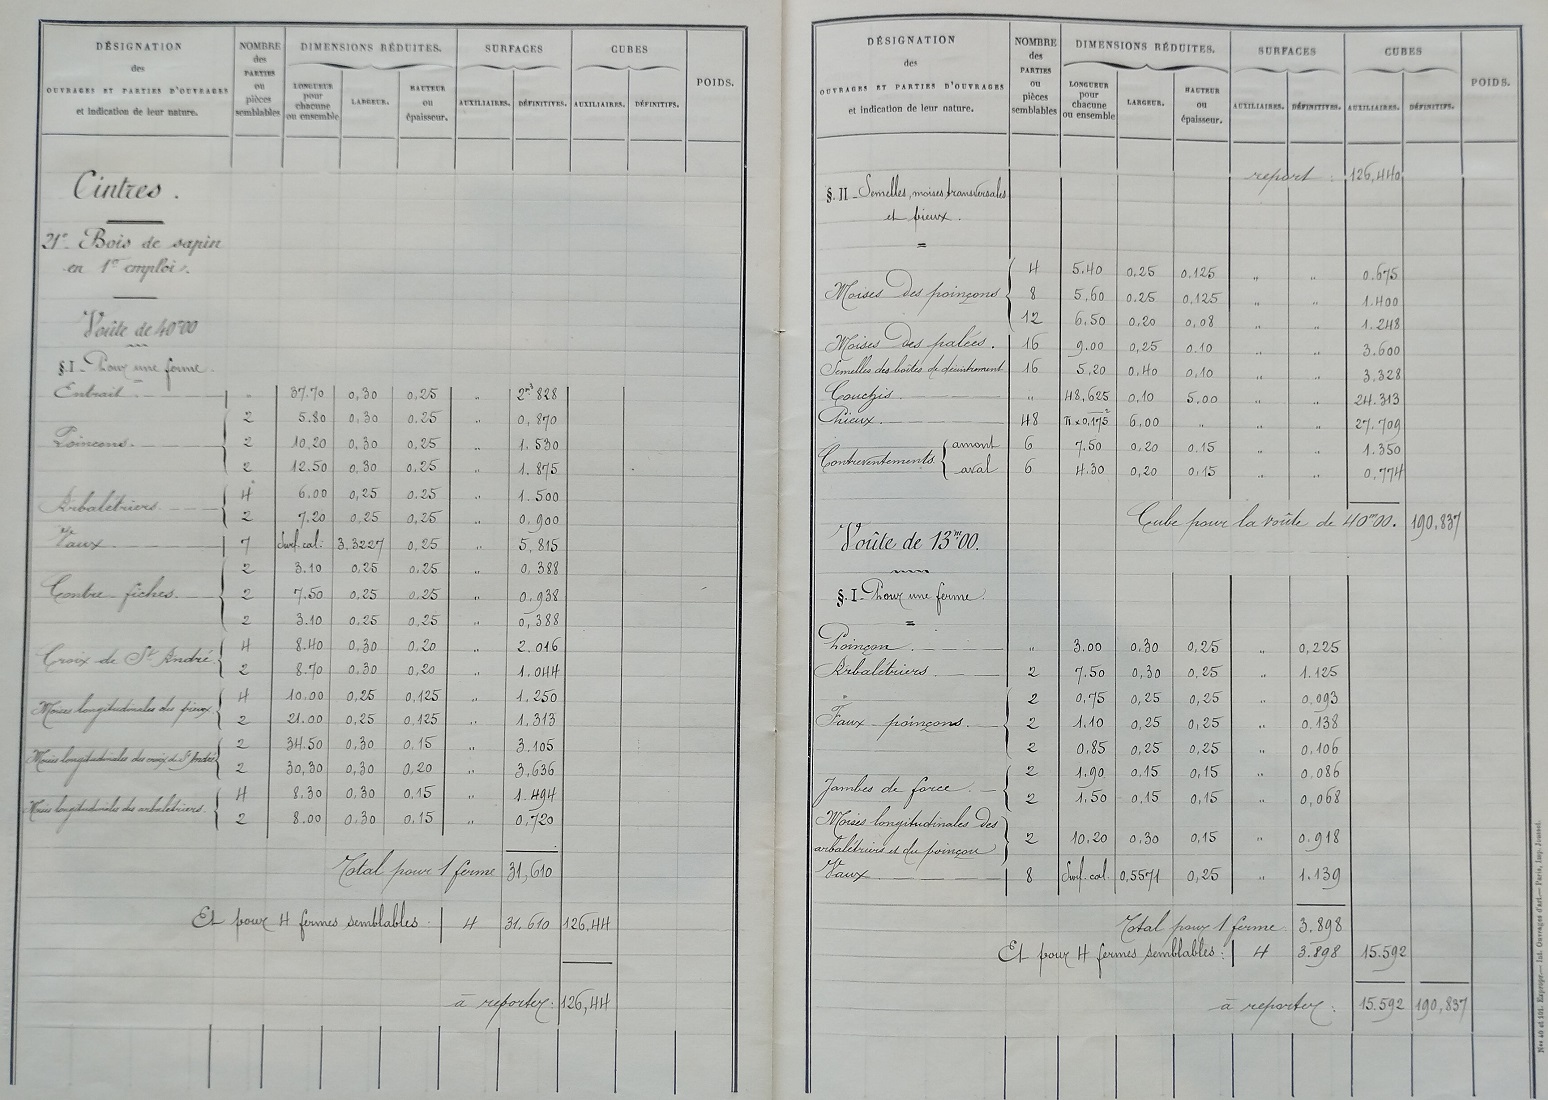 DÉSIGNATION
des
OUVRAGES ET PARTIES D'OUVRAGES
et indication de leur nature.
NOMBRE des PARTIES ou pièces semblables
DIMENSIONS RÉDUITES.
LONGUEUR pour chacune ou ensemble
LARGEUR.
HAUTEUR ou épaisseur.
SURFACES
AUXILIAIRES. DÉFINITIVES.
CUBES
AUXILIAIRES. DÉFINITIFS.
POIDS.
Cintres.
21° Bois de sapin
en 1er emploi.
Voûte de 40m00
§.I_ Pour une ferme.
Entrait. " 37.70 0,30 0,25 " 2m3 828
2 5.80 0,30 0.25 " 0,870
Poinçons. 2 10,20 0,30 0,25 " 1.530
2 12.50 0,30 0,25 " 1.875
4 6.00 0,25 0.25 " 1.500
Arbalétriers. 2 7,20 0,25 0,25 " 0.900
Vaux 7 Surf. cal: 3.3227 0,25 " 5,815
2 3.10 0,25 0,25 " 0,388
Contre-fiches. 2 7,50 0,25 0,25 " 0,938
2 3.10 0,25 0,25 " 0,388
4 8.40 0,30 0,20 " 2.016
Croix de St André. 2 8.70 0,30 0,20 " 1.044
4 10.00 0,25 0,125 " 1.250
Moises longitudinales des pieux 2 21.00 0,25 0,125 " 1.313
2 34.50 0,30 0,15 " 3.105
Moises longitudinales des croix de St André 2 30,30 0,30 0,20 " 3,636
4 8.30 0,30 0,15 " 1.494
Moises longitudinales des arbalétriers. 2 8.00 0,30 0,15 " 0,720
Total pour 1 ferme 31,610
Et pour 4 fermes semblables. 4 31.610 126,44
à reporter: 126,44
DÉSIGNATION
des
OUVRAGES ET PARTIES D'OUVRAGES
et indication de leur nature.
NOMBRE des PARTIES ou pièces semblables
DIMENSIONS RÉDUITES.
LONGUEUR pour chacune ou ensemble
LARGEUR.
HAUTEUR ou épaisseur.
SURFACES
AUXILIAIRES. DÉFINITIVES.
CUBES
AUXILIAIRES. DÉFINITIFS.
POIDS.
report: 126,440
§.II_ Semelles, moises transversales
et pieux.
4 5.40 0,25 0.125 " " 0.675
Moises des poinçons 8 5,60 0.25 0,125 " " 1.400
12 6.50 0,20 0,08 " " 1.248
Moises des palées. 16 9.00 0,25 0.10 " " 3.600
Semelles des boîtes de décintrement 16 5,20 0,40 0,10 " " 3,328
Couchis. " 48,625 0,10 5,00 " " 24.313
Pieux. 48 π×0,175² 6.00 " " " 27,709
amont 6 7.50 0,20 0,15 " " 1.350
Contreventements. aval 6 4.30 0,20 0,15 " " 0,774
Cube pour la voûte de 40m00. 190.837
Voûte de 13m00.
§.I_ Pour une ferme.
Poinçon. " 3.00 0,30 0,25 " 0,225
Arbalétriers. 2 7.50 0,30 0,25 " 1.125
2 0,75 0,25 0,25 " 0,093
Faux-poinçons. 2 1.10 0,25 0,25 " 0.138
2 0,85 0,25 0,25 " 0,106
2 1.90 0.15 0,15 " 0.086
Jambes de force. 2 1.50 0.15 0,15 " 0,068
Moises longitudinales des
arbalétriers et du poinçon 2 10.20 0,30 0,15 " 0.918
Vaux 8 Surf. cal. 0,5571 0,25 " 1.139
Total pour 1 ferme. 3.898
Et pour 4 fermes semblables: 4 3.898 15.592
à reporter: 15.592 190,837